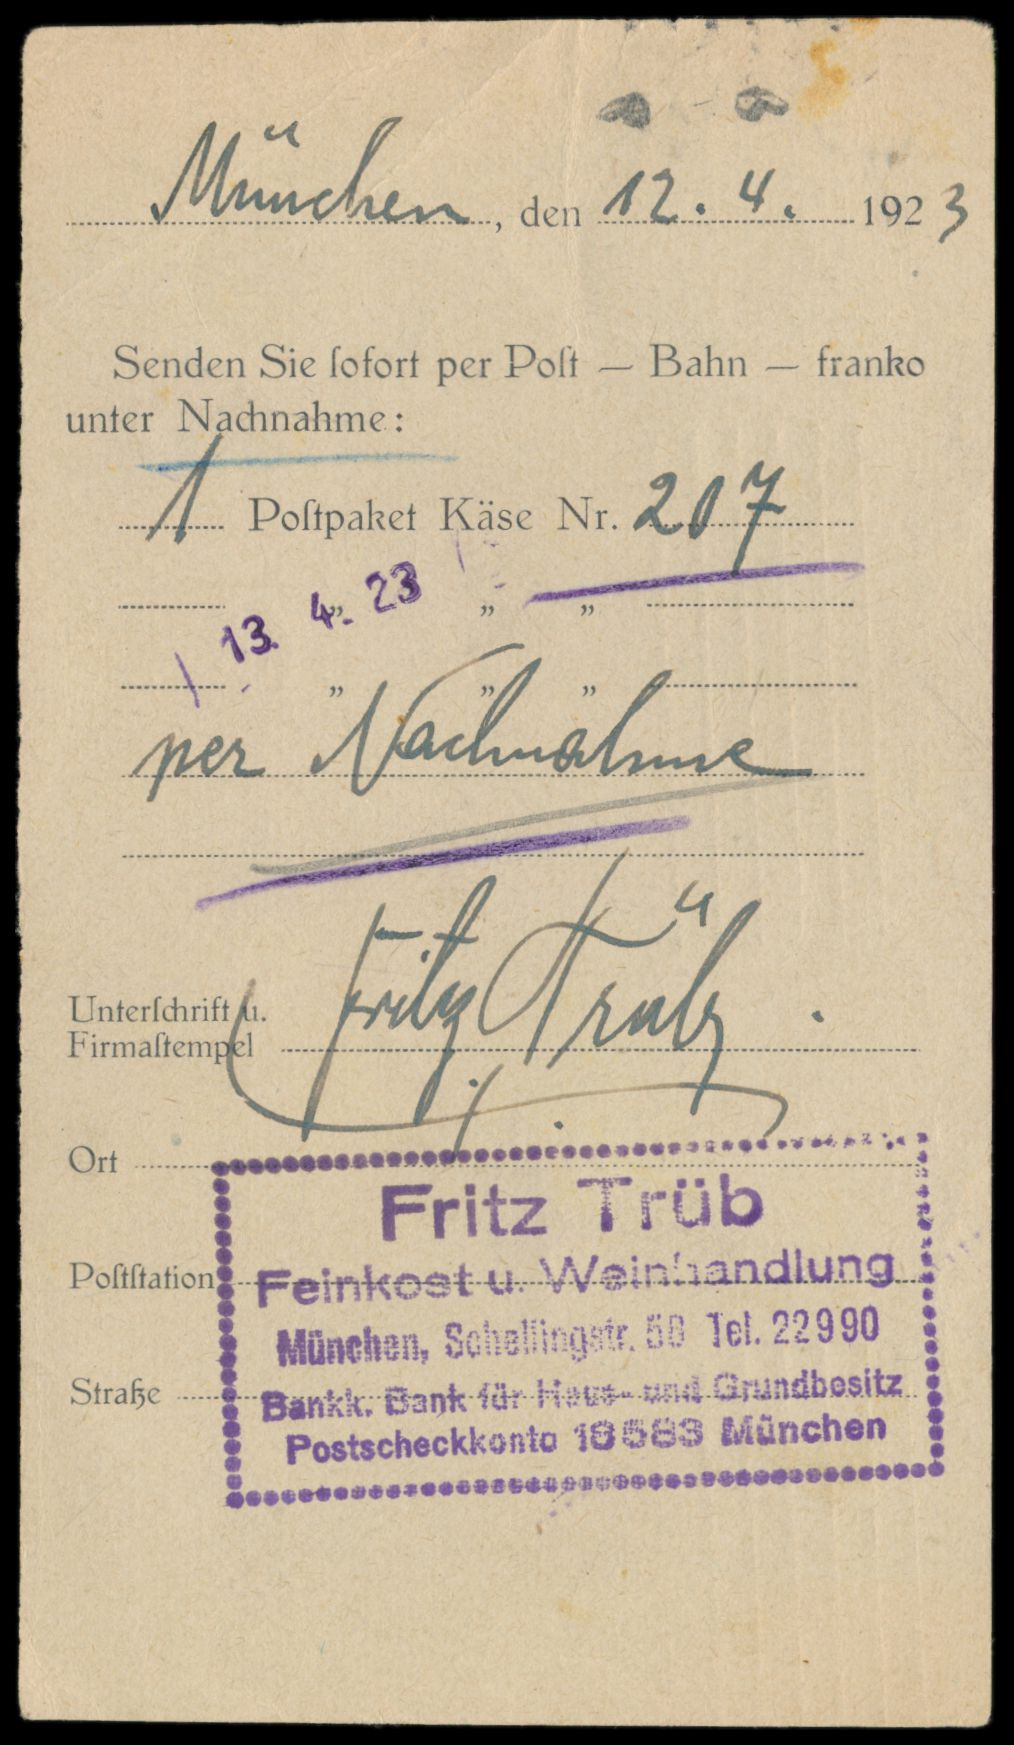 München, den 12. 4. 1923
Senden Sie ſofort per Poſt — Bahn — franko
unter Nachnahme:
1 Poſtpaket Käse Nr. 207
„ „ „
13. 4. 23
„ „ „
per Nachnahme
Fritz Trüb.
Unterſchrift u.
Firmaſtempel
Ort
Fritz Trüb
Poſtſtation
Feinkost u. Weinhandlung
München, Schellingstr. Tel. 22990
Straße
Bankk. Bank für Haus- und Grundbesitz
Postscheckkonto München